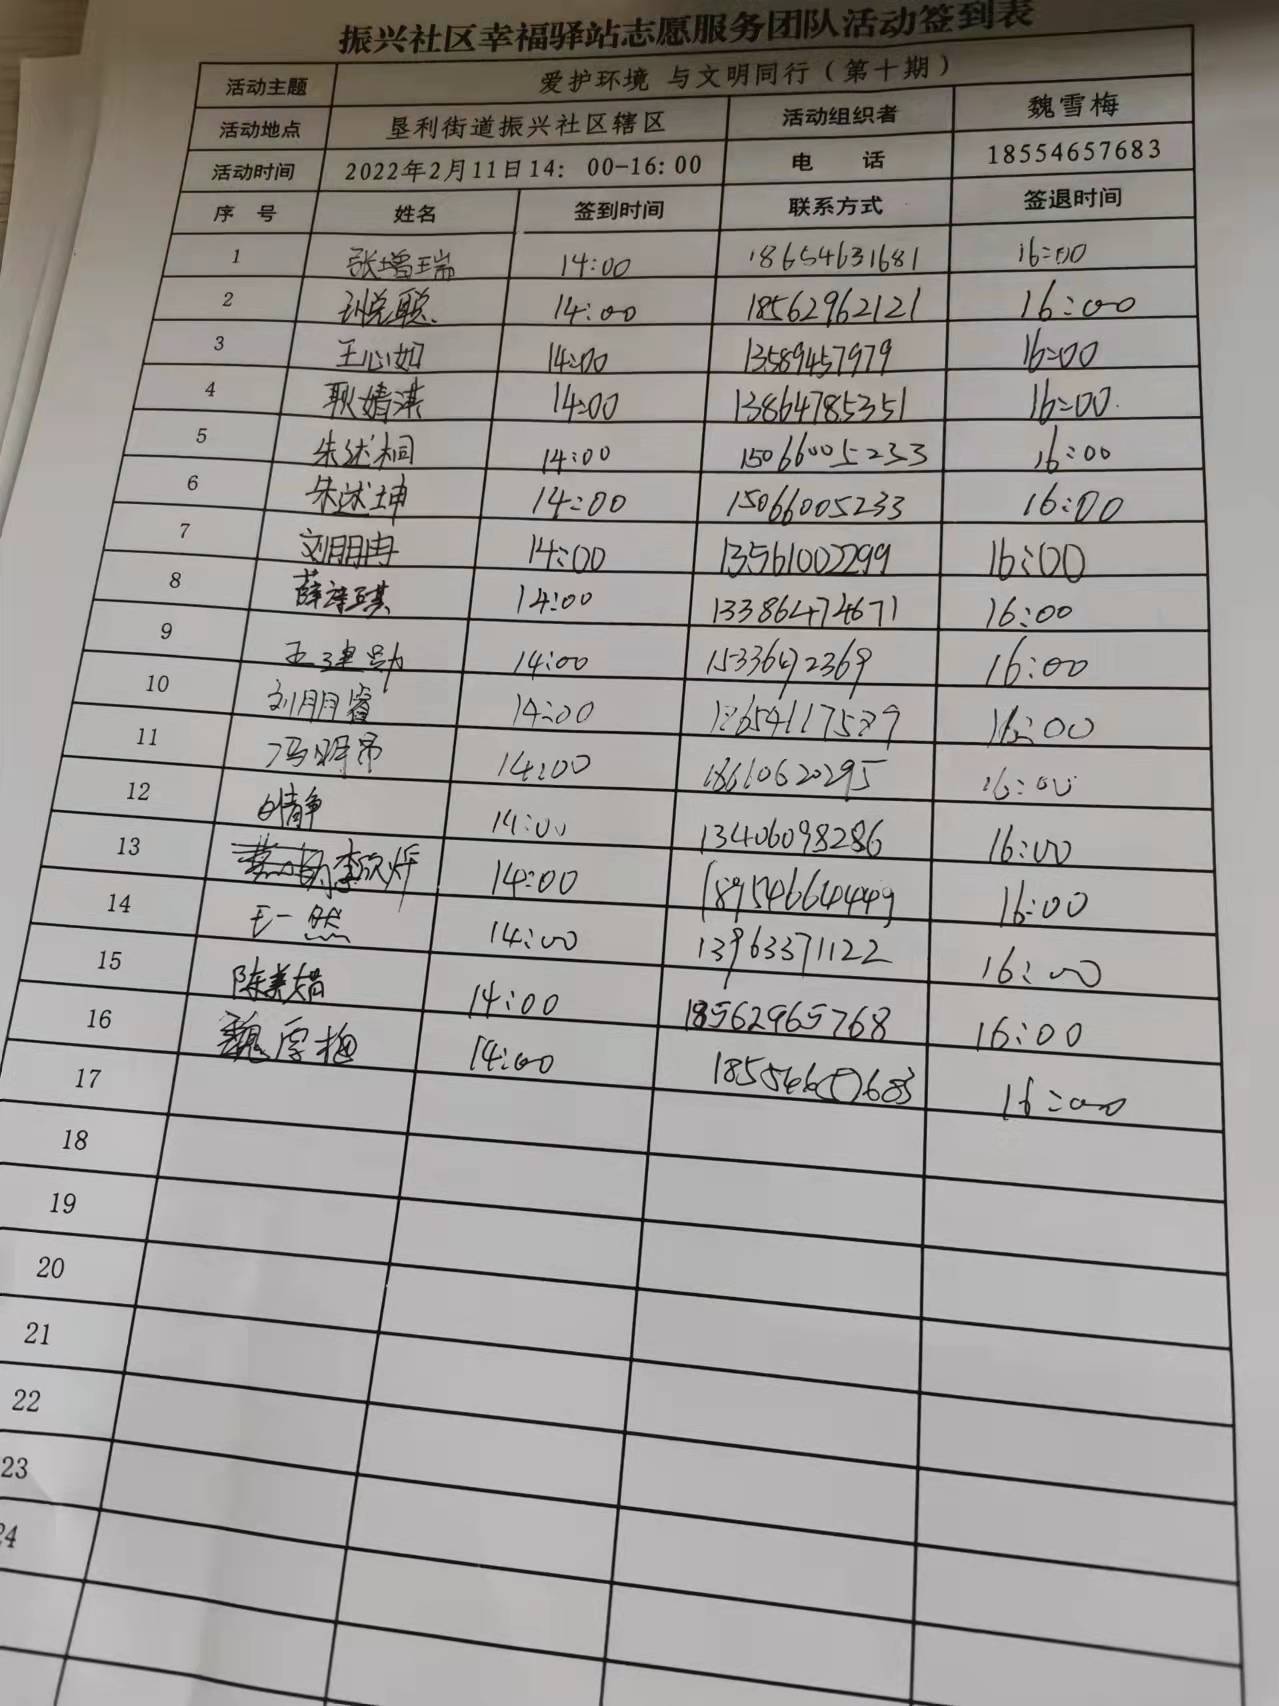 振兴社区幸福驿站志愿服务团队活动签到表
活动主题 爱护环境 与文明同行（第十期）
活动地点 垦利街道振兴社区辖区 活动组织者 魏雪梅
活动时间 2022年2月11日14：00-16:00 电 话 18554657683
序 号 姓名 签到时间 联系方式 签退时间
1 张增瑞 14:00 18654631681 16:00
2 14:00 18562962121 16:00
3 王心如 14:00 13589457979 16:00
4 耿婧淇 14:00 13864785351 16:00
5 朱述桐 14:00 15066005233 16:00
6 朱述坤 14:00 15066005233 16:00
7 刘朋冉 14:00 13561002299 16:00
8 14:00 13386474671 16:00
9 王建勋 14:00 16:00
10 刘朋睿 14:00 16:00
11 14:00 18610620295 16:00
12 14:00 13406098286 16:00
13 李欣烨 14:00 18954664449 16:00
14 王一然 14:00 13963371122 16:00
15 陈美娟 14:00 18562965768 16:00
16 魏雪梅 14:00 18554657683 16:00
17
18
19
20
21
22
23
24